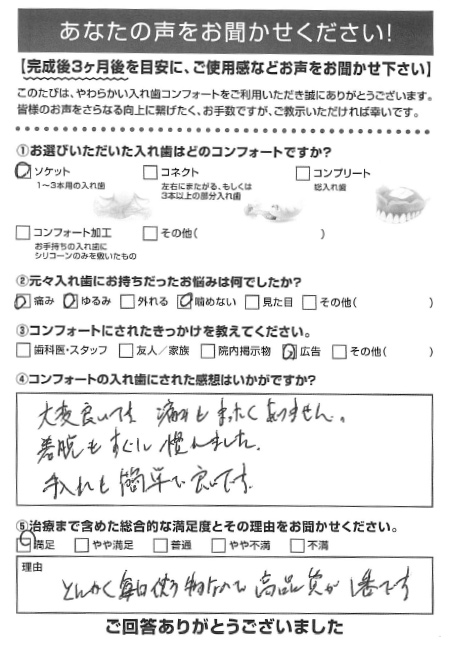 あなたの声をお聞かせください!
【完成後3ヶ月後を目安に、ご使用感などお声をお聞かせ下さい】
このたびは、やわらかい入れ歯コンフォートをご利用いただき誠にありがとうございます。
皆様のお声をさらなる向上に繋げたく、お手数ですが、ご教示いただければ幸いです。
①お選びいただいた入れ歯はどのコンフォートですか?
ソケット
1〜3本用の入れ歯
コネクト
左右にまたがる、もしくは
3本以上の部分入れ歯
コンプリート
総入れ歯
コンフォート加工
お手持ちの入れ歯に
シリコーンのみを敷いたもの
その他( )
②元々入れ歯にお持ちだったお悩みは何でしたか?
痛み ゆるみ 外れる 噛めない 見た目 その他( )
③コンフォートにされたきっかけを教えてください。
歯科医・スタッフ 友人/家族 院内掲示物 広告 その他( )
④コンフォートの入れ歯にされた感想はいかがですか?
大変良いです 痛みもまったくありません。
着脱もすぐに慣れました。
手入れも簡単で良いです。
⑤治療まで含めた総合的な満足度とその理由をお聞かせください。
満足 やや満足 普通 やや不満 不満
理由
とにかく毎日使う物なので高品質が1番です
ご回答ありがとうございました